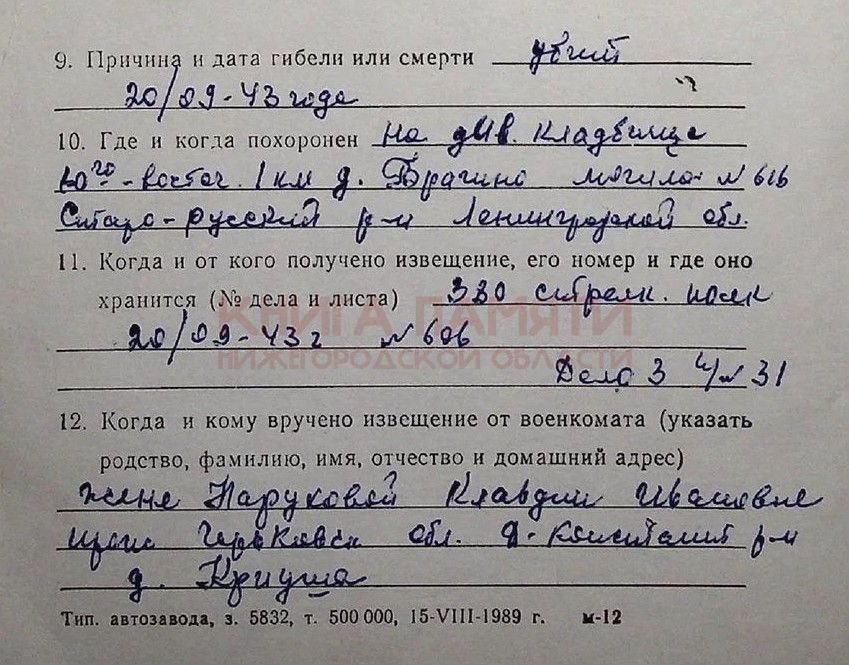 9. Причина и дата гибели или смерти убит
20/09-43 года
10. Где и когда похоронен на див. кладбище
ю го-восточ. 1 км д. Брагино могила N 616
Старо-русский р-н Ленинградской обл.
11. Когда и от кого получено извещение, его номер и где оно
хранится (№ дела и листа) 380 стрелк. полк
20/09-43 г N 606
КНИГА ПАМЯТИ
НИЖЕГОРОДСКОЙ ОБЛАСТИ
Дело 3 N 31
12. Когда и кому вручено извещение от военкомата (указать
родство, фамилию, имя, отчество и домашний адрес)
жене Паруковой Клавдии Ивановне
Горьковск обл. Д-Констант р-н
д. Криуша
Тип. автозавода, з. 5832, т. 500 000, 15-VIII-1989 г. м-12